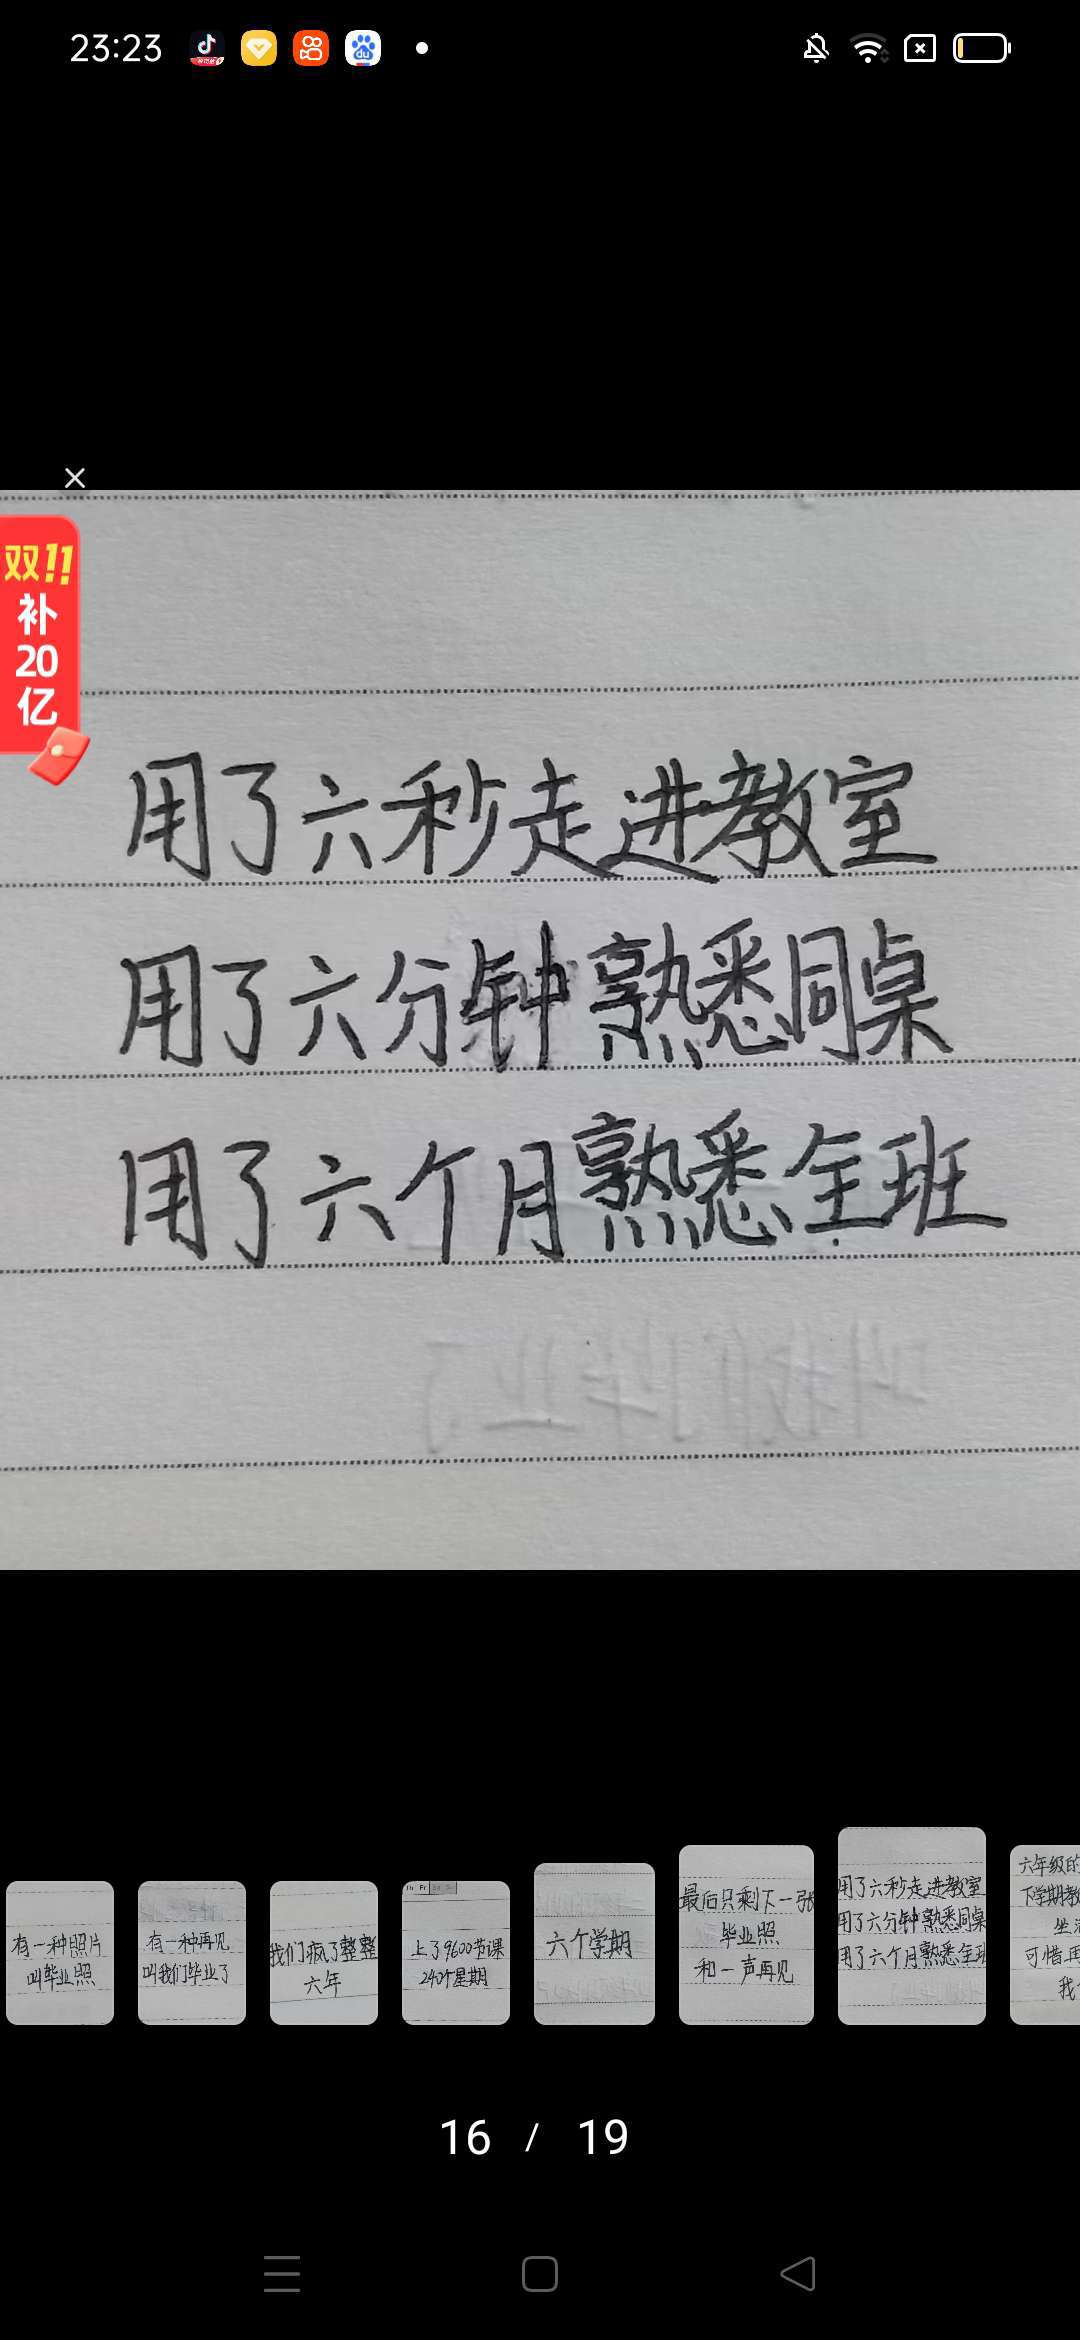 23:23
双11
补
20
亿
用了六秒走进教室
用了六分钟熟悉同桌
用了六个月熟悉全班
有一种照片
叫毕业照
有一种再见
叫我们毕业了
我们疯了整整
六年
上了9600节课
240个星期
六个学期
最后只剩下一张
毕业照
和一声再见
用了六秒走进教室
用了六分钟熟悉同桌
用了六个月熟悉全班
六年级的
下学期教
坐
可惜再
我
16 / 19